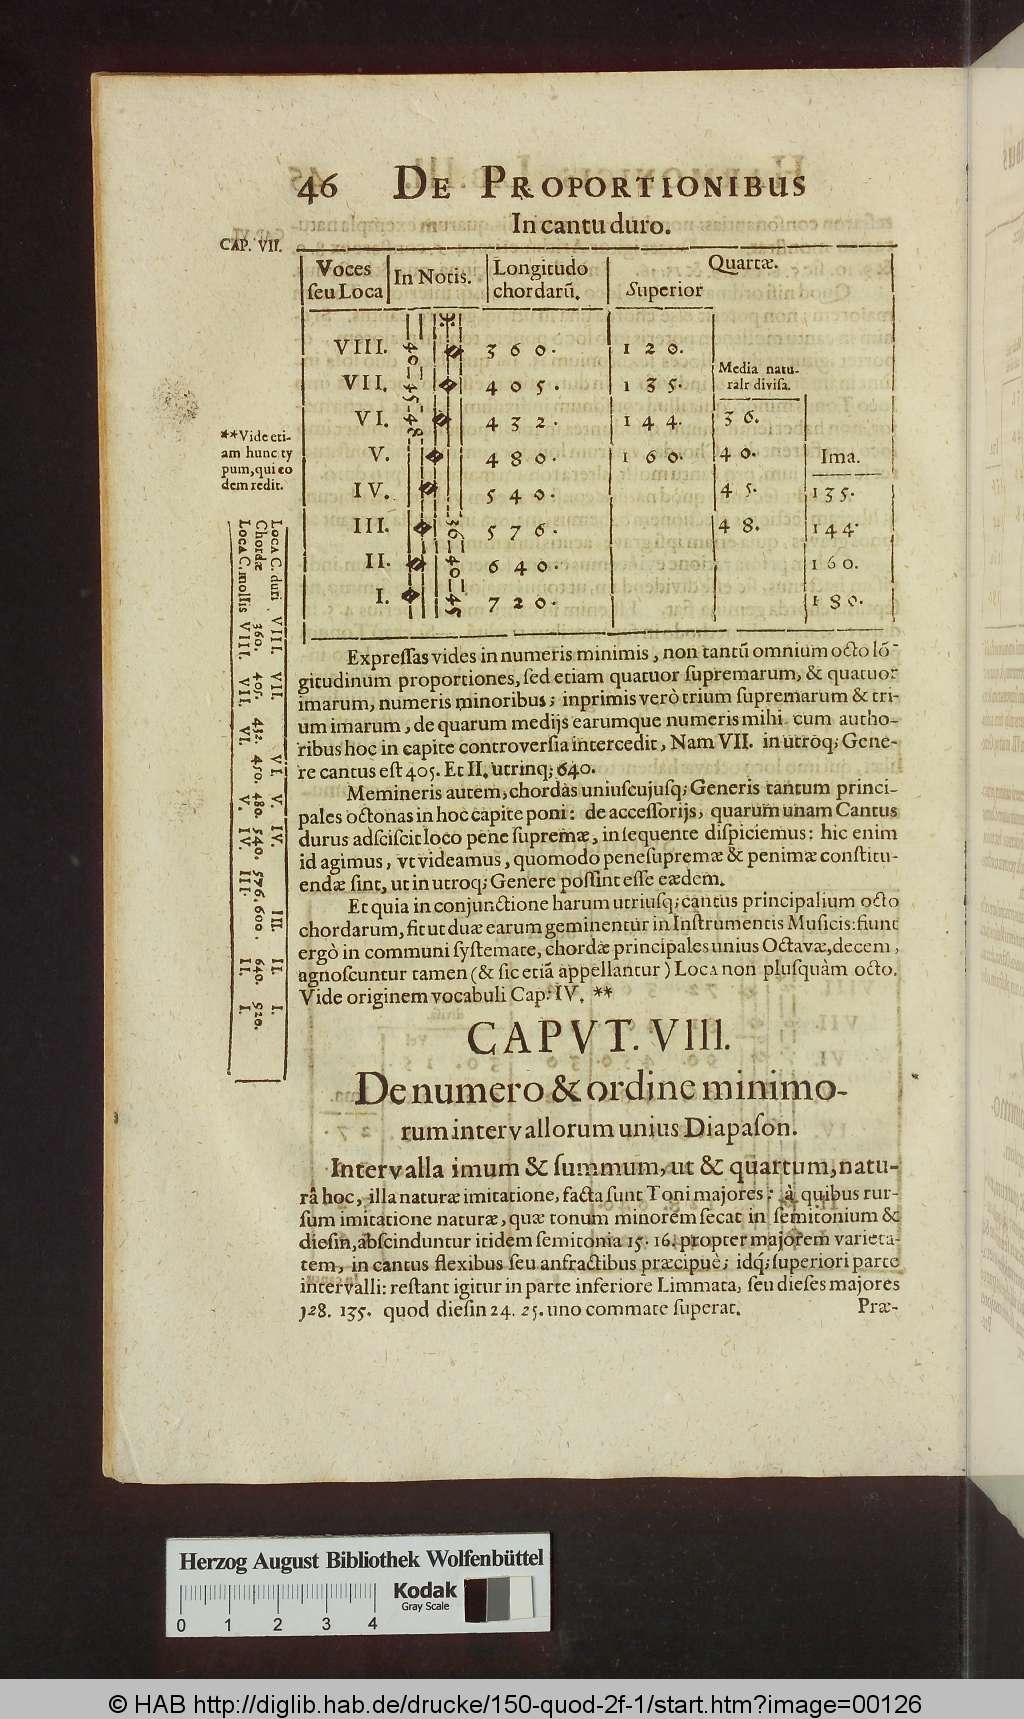 46 DE PROPORTIONIBUS
In cantu duro.
CAP. VII.
Voces
ſeu Loca
In Notis.
Longitudo
chordarũ.
Quartæ.
Superior
VIII. 360. 120.
VII. 405. 135.
Media natu-
ralr diviſa.
VI. 432. 144. 36.
V. 480. 160. 40. Ima.
IV. 540. 45. 135.
III. 576. 48. 144.
II. 640. 160.
I. 720. 180.
40-45-48
36-40-45
**Vide eti-
am hunc ty
pum, qui eo
dem redit.
Loca C. duri. VIII. VII. VI. V. IV. III. II. I.
Chordæ 360. 405. 432. 450. 480. 540. 576. 600. 640. 520.
Loca C. mollis VIII. VII. VI. V. IV. III. II. I.
Expreſſas vides in numeris minimis, non tantũ omnium octo lõ-
gitudinum proportiones, ſed etiam quatuor ſupremarum, & quatuor
imarum, numeris minoribus; inprimis verò trium ſupremarum & tri-
um imarum, de quarum medijs earumque numeris mihi cum autho-
ribus hoc in capite controverſia intercedit, Nam VII. in utroq; Gene-
re cantus eſt 405. Et II. utrinq; 640.
Memineris autem, chordas uniuſcujuſq; Generis tantum princi-
pales octonas in hoc capite poni: de acceſſorijs, quarum unam Cantus
durus adſciſcit loco pene ſupremæ, in ſequente diſpiciemus: hic enim
id agimus, vt videamus, quomodo peneſupremæ & penimæ conſtitu-
endæ ſint, ut in utroq; Genere poſſint eſſe eædem.
Et quia in conjunctione harum utriuſq; cantus principalium octo
chordarum, fit ut duæ earum geminentur in Inſtrumentis Muſicis: fiunt
ergò in communi ſyſtemate, chordæ principales unius Octavæ, decem,
agnoſcuntur tamen (& ſic etiã appellantur) Loca non pluſquàm octo.
Vide originem vocabuli Cap: IV. **
CAPVT. VIII.
De numero & ordine minimo-
rum intervallorum unius Diapaſon.
Intervalla imum & ſummum, ut & quartum, natu-
râ hoc, illa naturæ imitatione, facta ſunt Toni majores: à quibus rur-
ſum imitatione naturæ, quæ tonum minorem ſecat in ſemitonium &
dieſin, abſcinduntur itidem ſemitonia 15. 16. propter majorem varieta-
tem, in cantus flexibus ſeu anfractibus præcipuè; idq́; ſuperiori parte
intervalli: reſtant igitur in parte inferiore Limmata, ſeu dieſes majores
128. 135. quod dieſin 24. 25. uno commate ſuperat.
Præ-
Herzog August Bibliothek Wolfenbüttel
Kodak
Gray Scale
0 1 2 3 4
© HAB http://diglib.hab.de/drucke/150-quod-2f-1/start.htm?image=00126